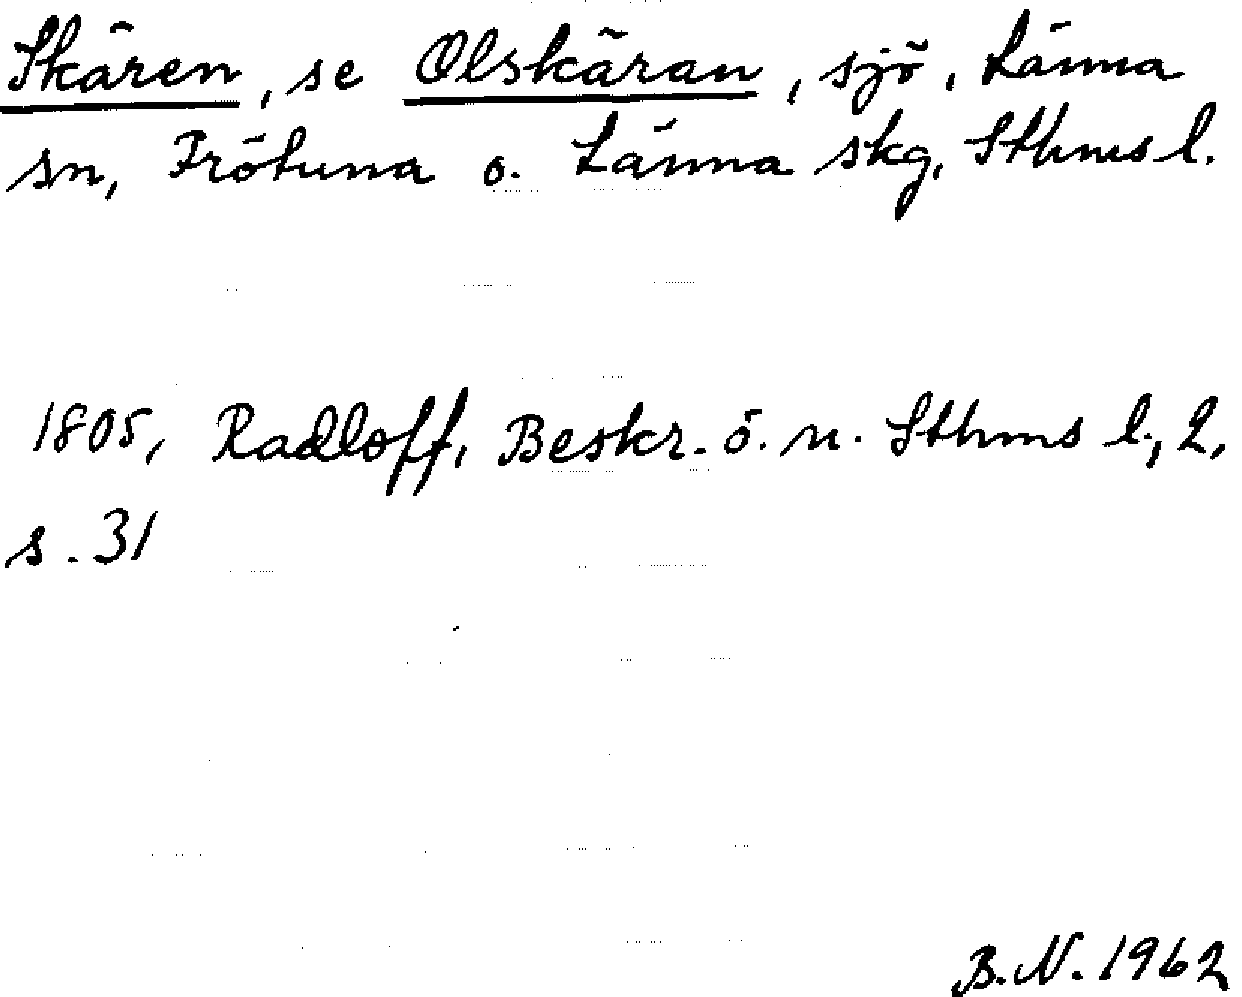 Skären, se Olskäran, sjö, Länna
sn, Frötuna o. Länna skg, Sthms l.
1805, Radloff, Beskr. ö. n. Sthms l., 2,
s. 31
B.N. 1962